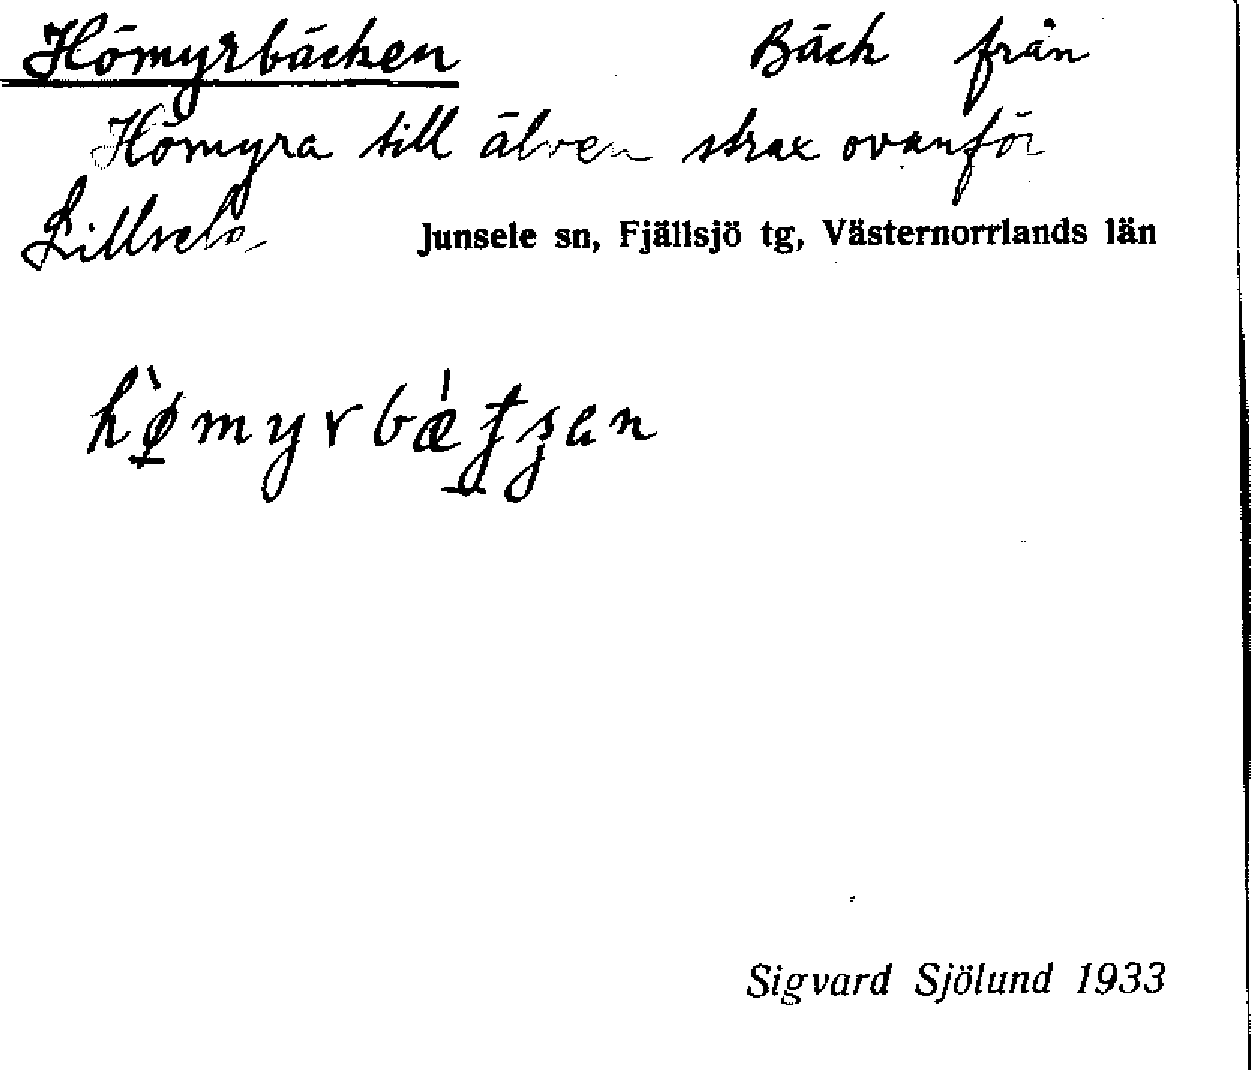 Hömyrbäcken Bäck från
Hömyra till älven strax ovanför
Lillsela
Junsele sn, Fjällsjö tg, Västernorrlands län
Sigvard Sjölund 1933